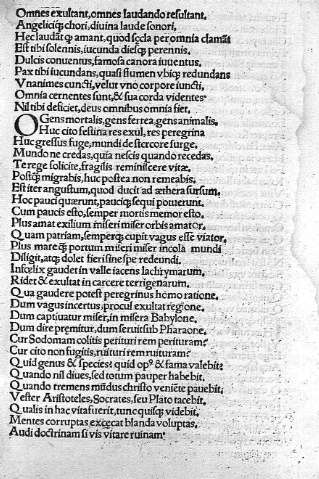 Omnes exultant, omnes laudando resultant,
Angelicisq; chori, diuina laude sonori,
Hec laudat q; amant, quod secla per omnia clamāt
Est tibi solennis, iucunda diesq; perennis,
Dulcis conuentus, famosa canora iuuentus,
Pax tibi iucundans, quasi flumen vbiq; redundans
Vnanimes cuncti, velut vno corpore iuncti,
Omnia cernentes sunt, & sua corda videntes
Nil tibi deficiet, deus omnibus omnia fiet,
O Gens mortalis, gens ferrea, gens animalis,
Huc cito festina res exul, res peregrina
Huc gressus fuge, mundi de stercore surge,
Mundo ne credas, quia nescis quando recedas,
Terege solicite, fragilis reminiscere vitæ,
Postq̃ migrabis, huc postea non remeabis,
Est iter angustum, quod ducit ad æthera sursum,
Hoc pauci quærunt, pauciq; sequi potuerunt,
Cum paucis esto, semper mortis memor esto,
Plus amat exilium miseri miser orbis amator,
Quam patriam, semperq; cupit vagus esse viator,
Plus mare q̃ portum miseri miser incola mundi
Diligit, atq; dolet fieri sine spe redeundi.
Infœlix gaudet in valle iacens lachrymarum,
Ridet & exultat in carcere terrigenarum.
Qua gaudere potest peregrinus homo ratione,
Dum vagus incertus, procul exultat regione,
Dum captiuatur miser, in misera Babylone,
Dum dire premitur, dum seruit sub Pharaone.
Cur Sodomam colitis perituri rem perituram?
Cur cito non fugitis, ruituri rem ruituram?
Quid genus & species? quid op⁹ & fama valebit?
Quando nil diues, sed totum pauper habebit,
Quando tremens mūdus christo veniēte pauebit,
Vester Aristoteles, Socrates, seu Plato tacebit,
Qualis in hac vita fuerit, tunc quisq; videbit,
Mentes corruptas excęcat blanda voluptas,
Audi doctrinam si vis vitare ruinam